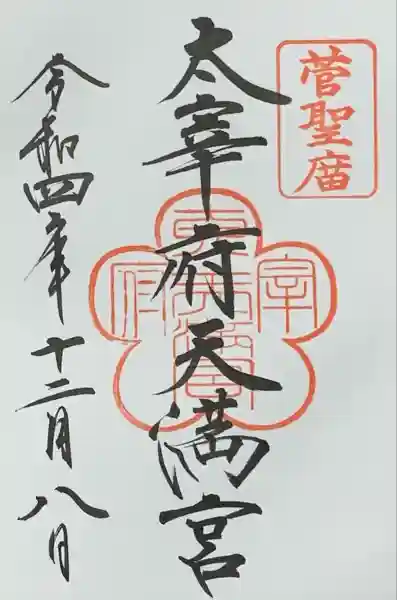 菅聖庿
太宰府天満宮
令和四年十二月八日